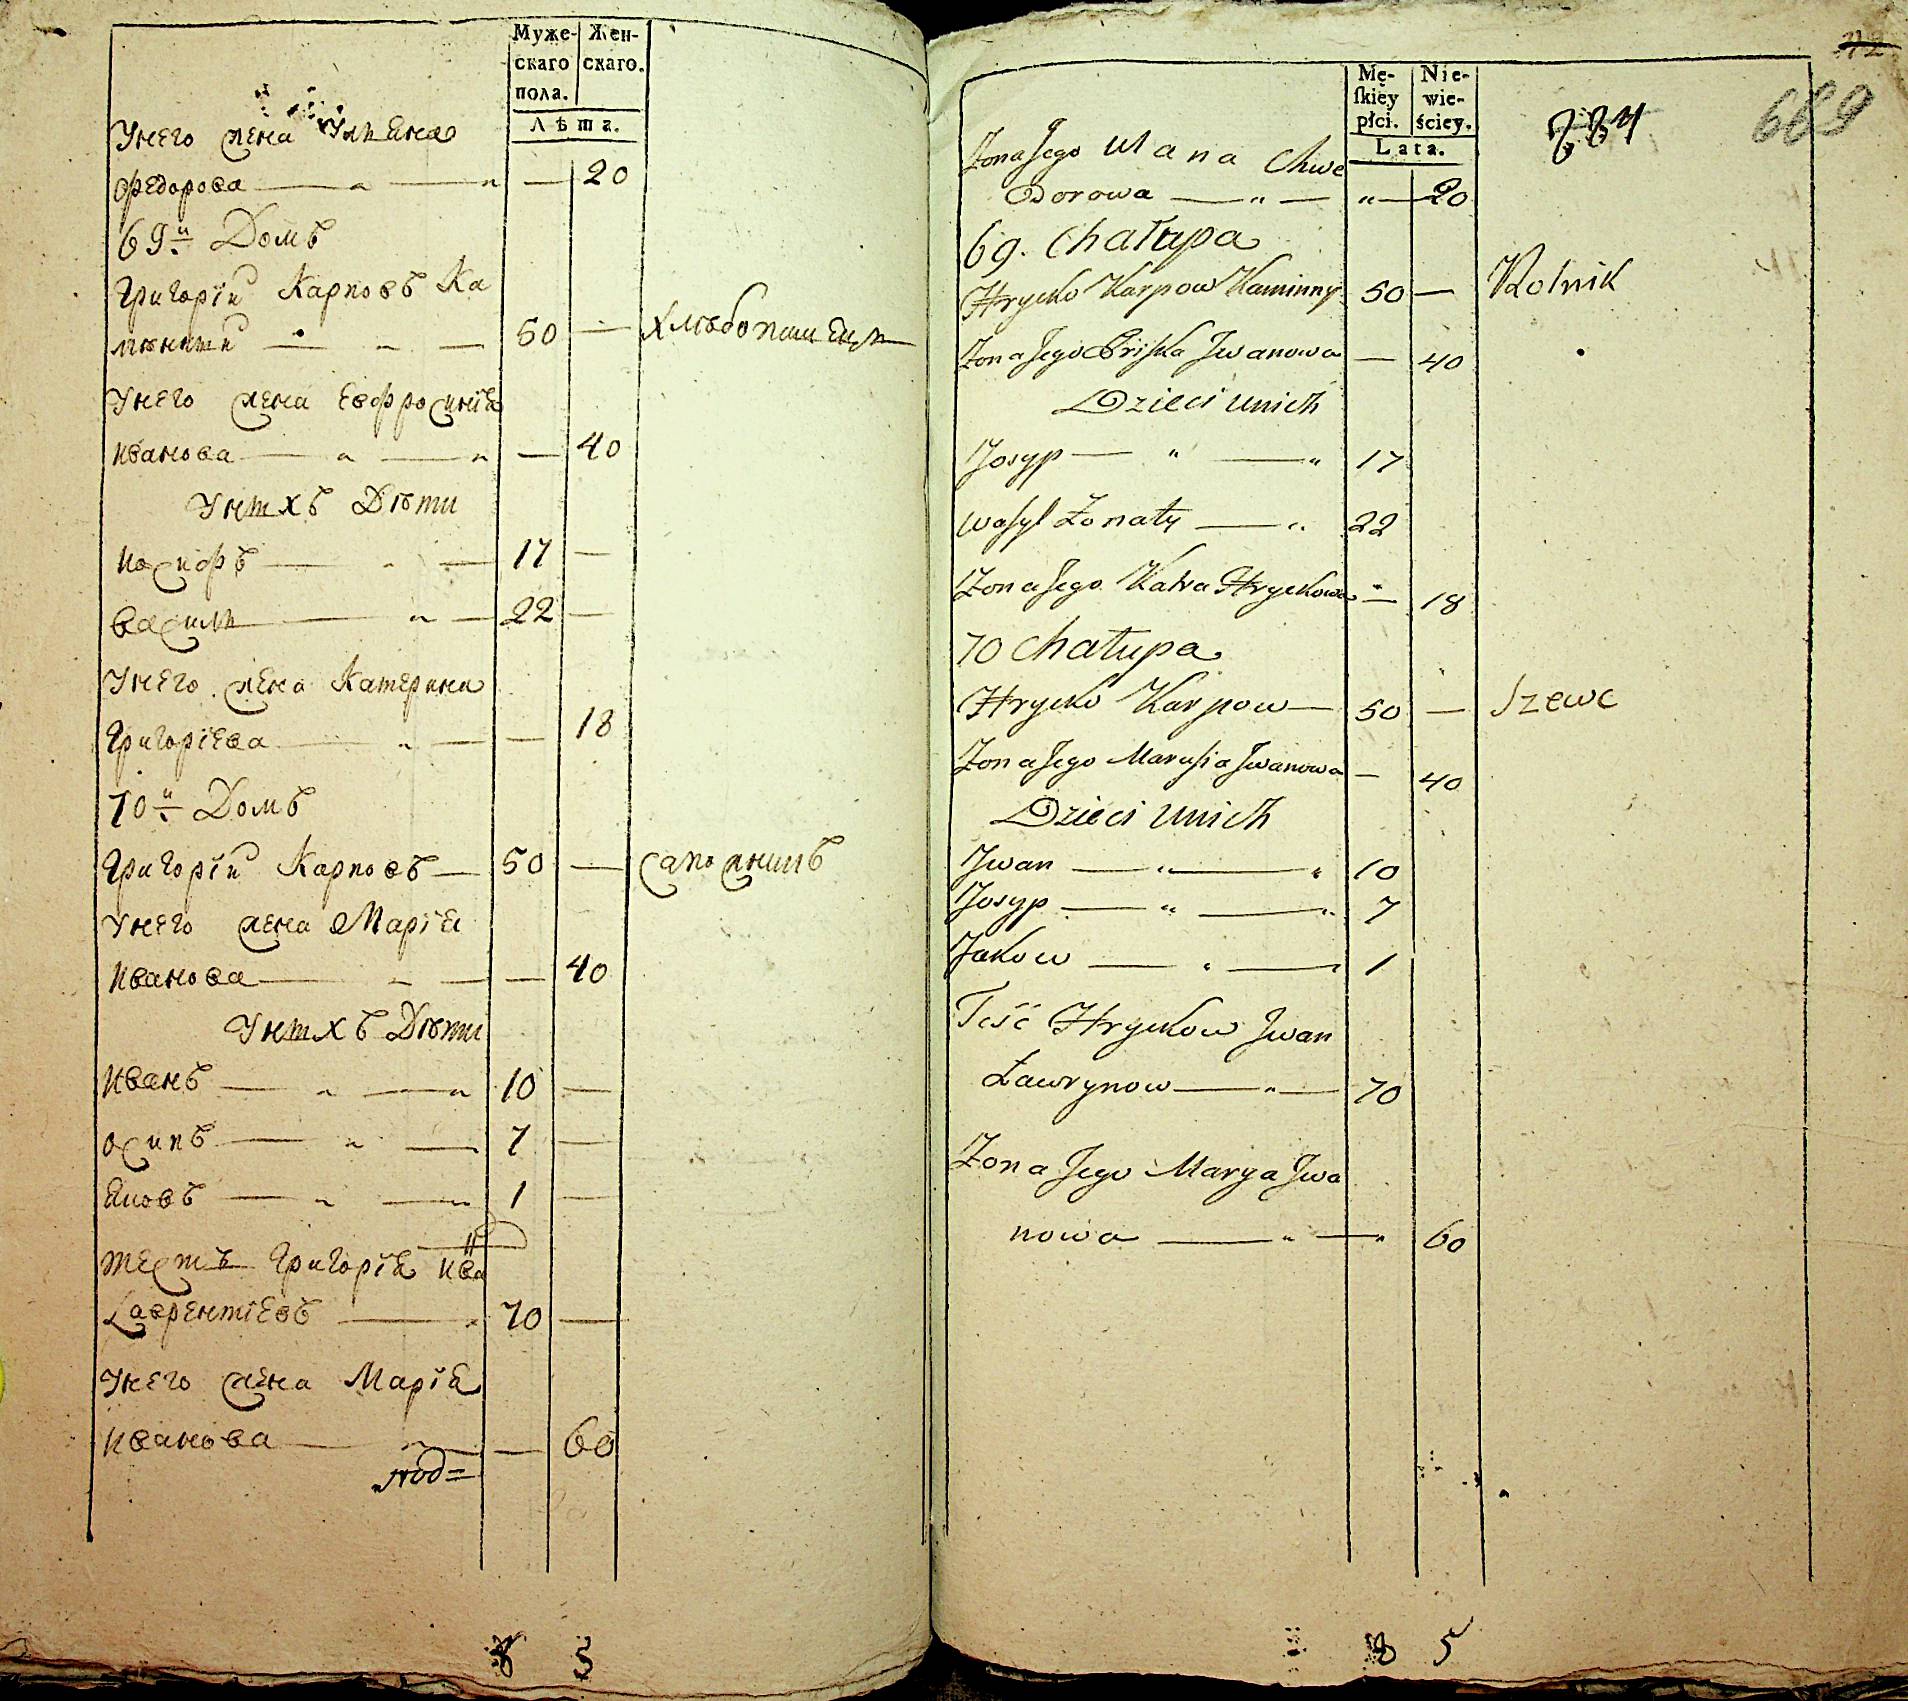 Муже-
скаго
пола.
Жен-
скаго.
Лѣта.
Унего жена Ульяна
Федорова — „ — „ — 20
69й Домъ
Григорій Карповъ Ка
мѣнный — „ — 50 — хлѣбопашецъ
Унего жена Евфросинія
Иванова — „ — „ — 40
Унихъ Дѣти
Иосифъ — „ — 17 —
Василій — „ — 22 —
Унего жена Катерина
Григоріева — „ — — 18
70й Домъ
Григорій Карповъ — 50 — сапожникъ
Унего жена Марія
Иванова — „ — — 40
Унихъ Дѣти
Иванъ — „ — „ 10 —
Осипъ — „ — 7 —
Яковъ — „ — „ 1 —
тесть Григорія Ива
Лаврентіевъ — 70 —
Унего жена Марія
Иванова — „ — — 60
8 5
Mę-
skiey
płci.
Nie-
wie-
ściey.
Lata.
42
669
Zona Jego Ulana Chwe
Dorowa — „ — „ — 20
69. Chałupa
Hrycko Karpow Kaminny 50 — Rolnik
Zona Jego Priska Jwanowa — 40
Dzieci unich
Josyp — „ — „ 17
Wasyl Żonaty — „ 22
Zona Jego Katra Hryckowa „— 18
70 Chałupa
Hrycko Karpow — 50 — Szewc
Zona Jego Marusia Jwanowa — 40
Dzieci unich
Jwan — „ — „ 10
Josyp — „ — „ 7
Jakow — „ — 1
Teść Hryckow Jwan
Ławrynow — „ — 70
Zona Jego Marya Jwa
nowa — „ — „ 60
8 5